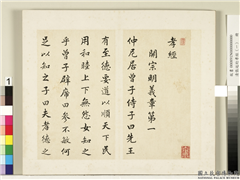 孝經
開宗明義章第一
仲尼居曾子侍子曰先王
有至德要道以順天下民
用和睦上下無怨女知之
乎曾子辟席曰參不敏何
足以知之子曰夫孝德之